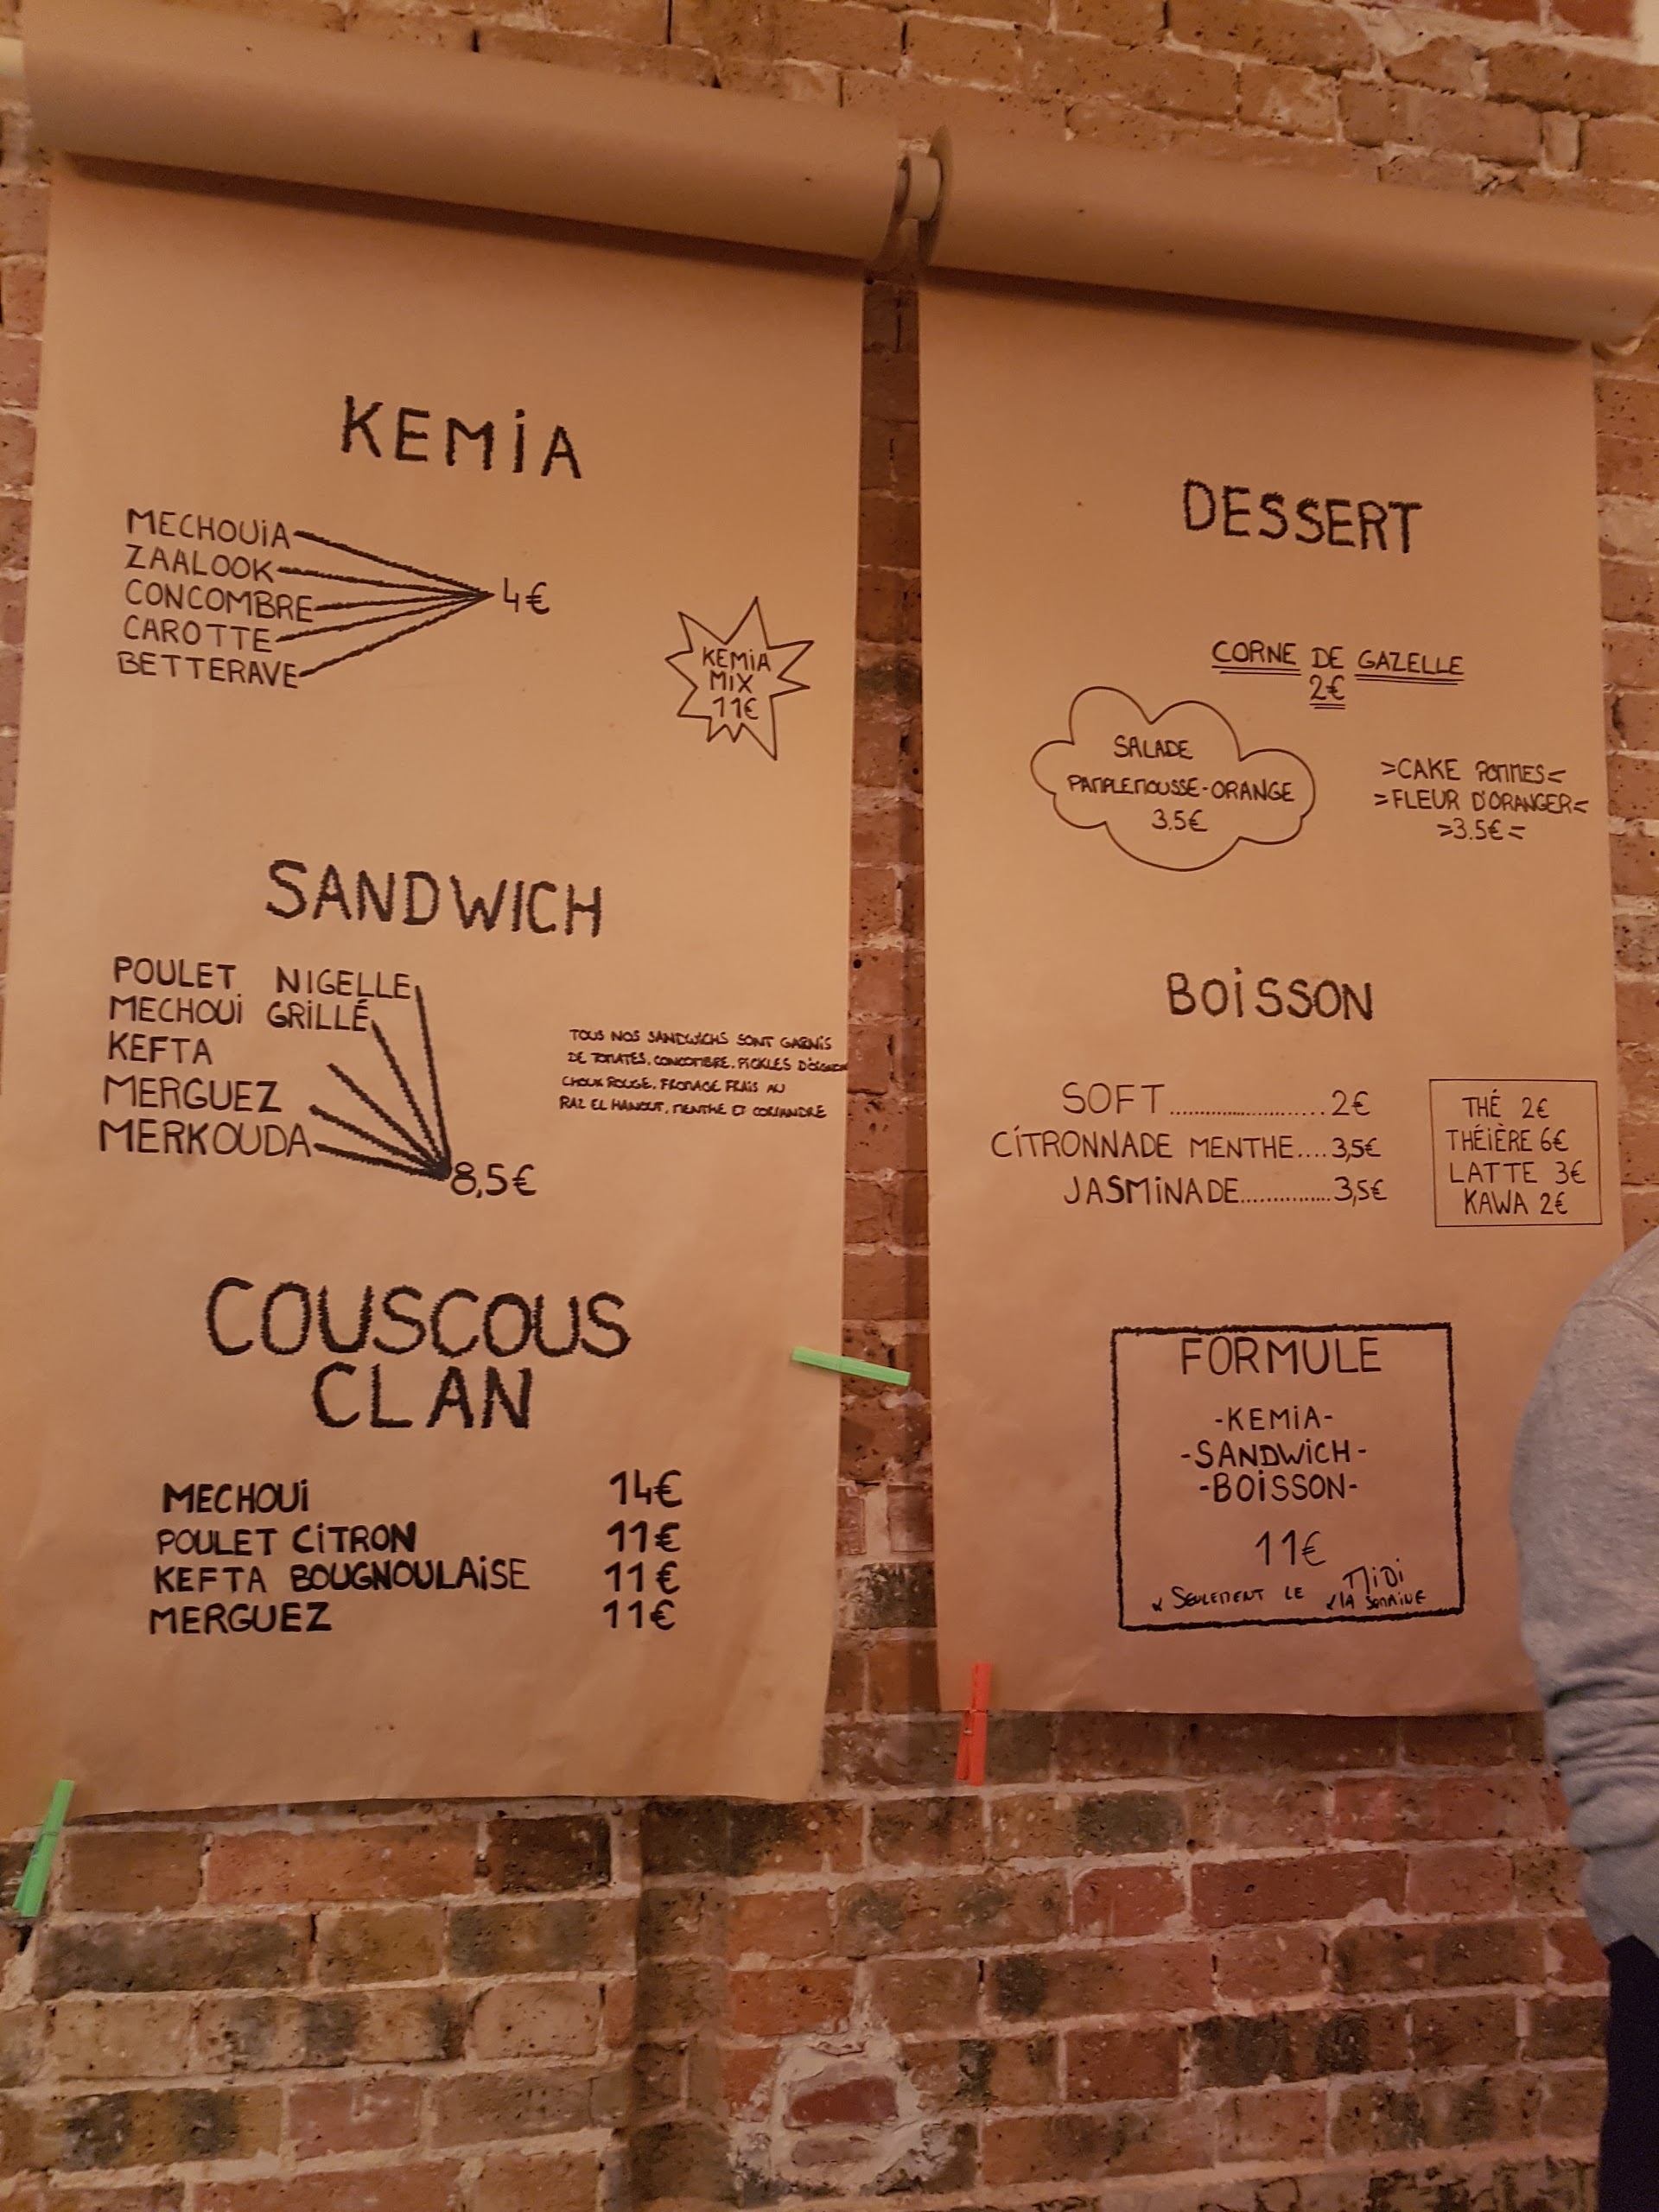 KEMiA
MECHOUiA
ZAALOOK
CONCOMBRE
CAROTTE
BETTERAVE
4€
KEMiA
MIX
11€
SANDWICH
POULET NIGELLE
MECHOUi GRILLÉ
KEFTA
MERGUEZ
MERKOUDA
8,5€
TOUS NOS SANDWICHS SONT GARNIS
DE TOMATES, CONCOMBRE, PICKLES D'OIGNON
CHOUX ROUGE, FROMAGE FRAIS AU
RAZ EL HANOUT, MENTHE ET CORIANDRE
COUSCOUS
CLAN
MECHOUi 14€
POULET CiTRON 11€
KEFTA BOUGNOULAiSE 11€
MERGUEZ 11€
DESSERT
CORNE DE GAZELLE
2€
SALADE
PAMPLEMOUSSE-ORANGE
3.5€
>CAKE POMMES<
>FLEUR D'ORANGER<
>3.5€<
BOiSSON
SOFT........................2€
CiTRONNADE MENTHE....3,5€
JASMiNADE...............3,5€
THÉ 2€
THÉiÈRE 6€
LATTE 3€
KAWA 2€
FORMULE
-KEMiA-
-SANDWiCH-
-BOiSSON-
11€
* SEULEMENT LE MiDi
LA SEMAINE